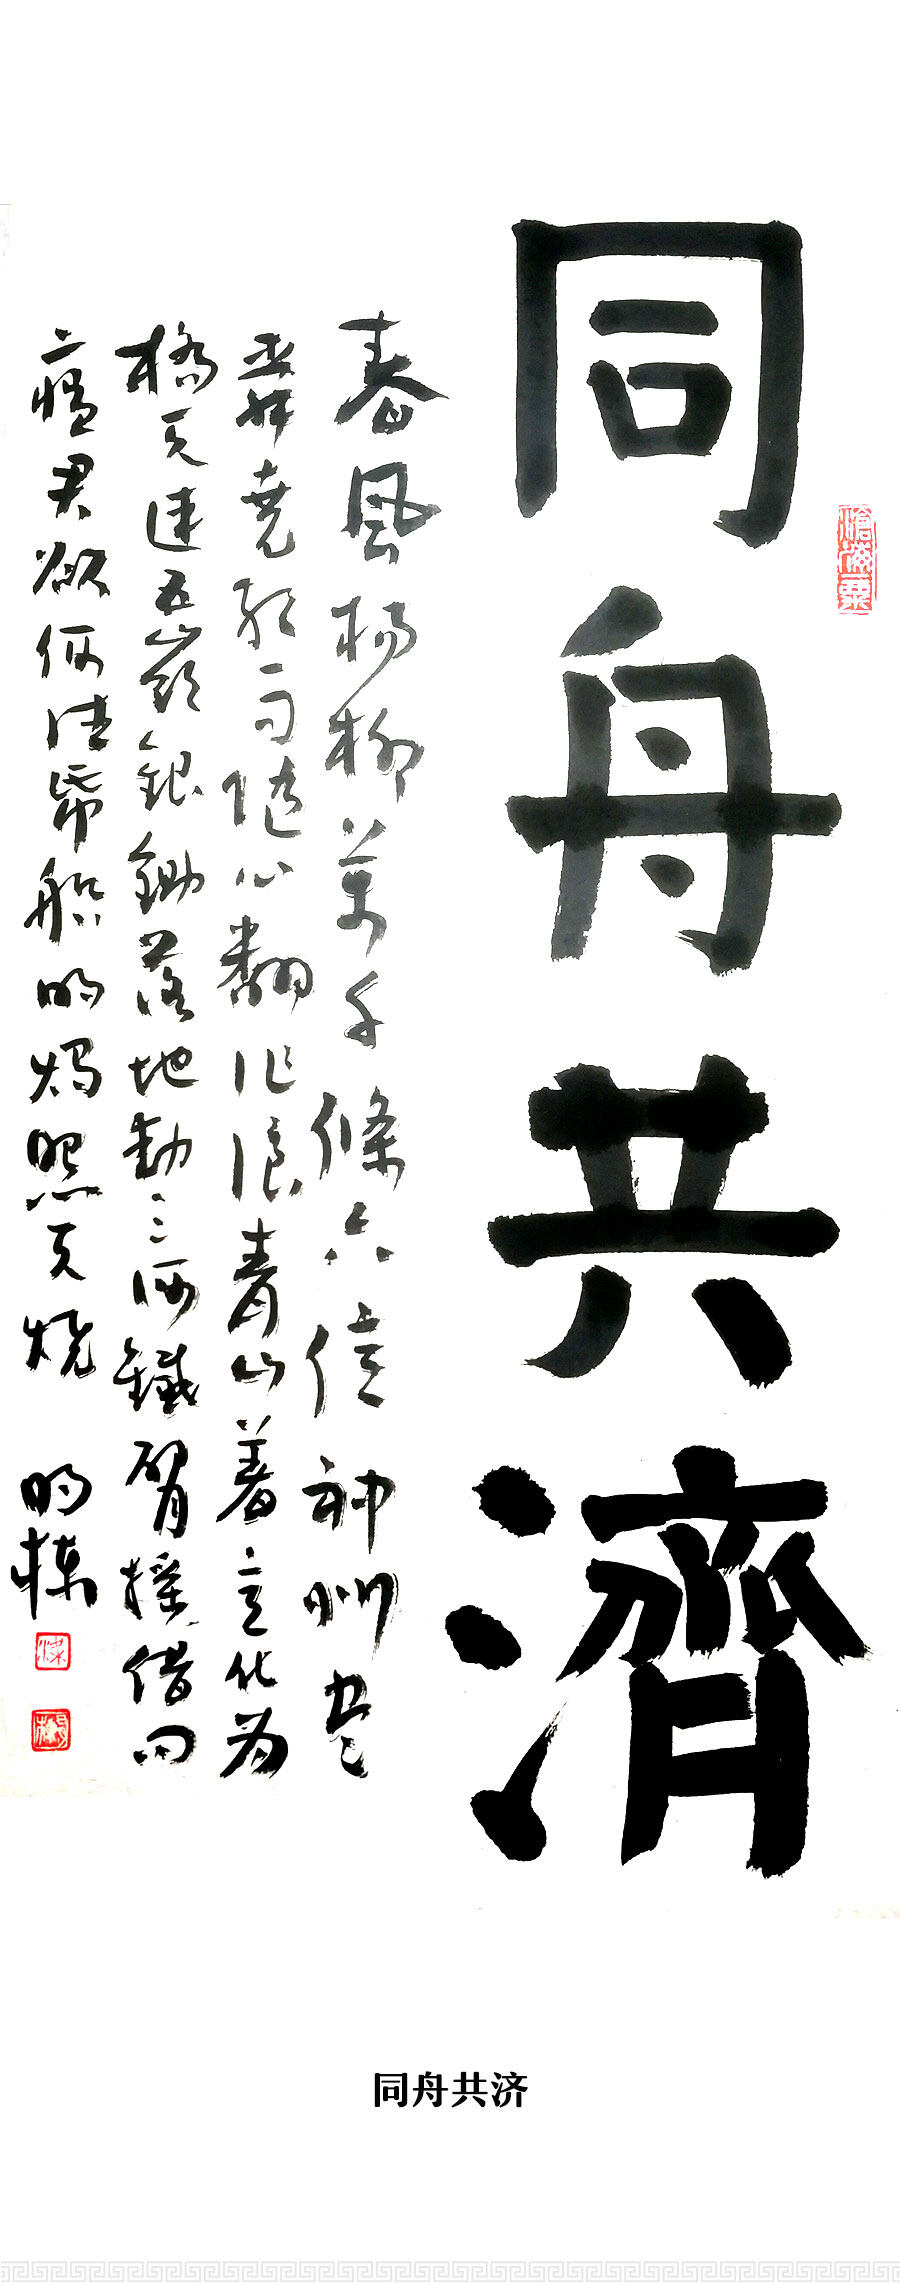 同舟共濟
滄海一粟
春風楊柳萬千條六億神州尽
舜堯紅雨隨心翻作浪青山着意化为
橋天連五嶺銀鋤落地動三河鐵臂摇借问
瘟君欲何往紙船明燭照天烧
明栋
同舟共济